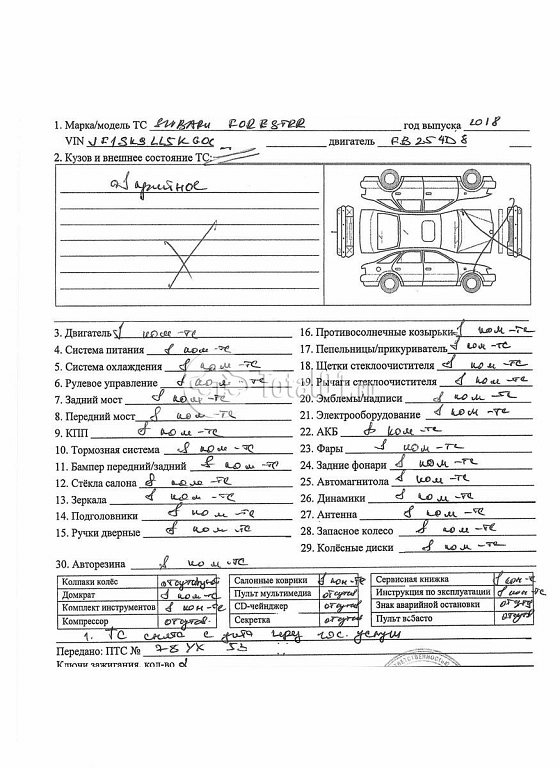 1. Марка/модель ТС SUBARU FORESTER год выпуска 2018
VIN JF1SK9LL5KG0 двигатель FB25 4D8
2. Кузов и внешнее состояние ТС:
Аварийное
3. Двигатель в ком-те
4. Система питания в ком-те
5. Система охлаждения в ком-те
6. Рулевое управление в ком-те
7. Задний мост в ком-те
8. Передний мост в ком-те
9. КПП в ком-те
10. Тормозная система в ком-те
11. Бампер передний/задний в ком-те
12. Стёкла салона в ком-те
13. Зеркала в ком-те
14. Подголовники в ком-те
15. Ручки дверные в ком-те
16. Противосолнечные козырьки в ком-те
17. Пепельницы/прикуриватель в ком-те
18. Щетки стеклоочистителя в ком-те
19. Рычаги стеклоочистителя в ком-те
20. Эмблемы/надписи в ком-те
21. Электрооборудование в ком-те
22. АКБ в ком-те
23. Фары в ком-те
24. Задние фонари в ком-те
25. Автомагнитола в ком-те
26. Динамики в ком-те
27. Антенна в ком-те
28. Запасное колесо в ком-те
29. Колёсные диски в ком-те
30. Авторезина в ком-те
Колпаки колёс отсутств Салонные коврики в ком-те Сервисная книжка в ком-те
Домкрат в ком-те Пульт мультимедиа отсутв Инструкция по эксплуатации в ком-те
Комплект инструментов в ком-те CD-чейнджер отсутв Знак аварийной остановки отсутв
Компрессор отсутв. Секретка отсутв Пульт вебасто отсутв
1. ТС снято с учёта через гос. услуги
Передано: ПТС № 78 УХ 53
Ключи зажигания, кол-во